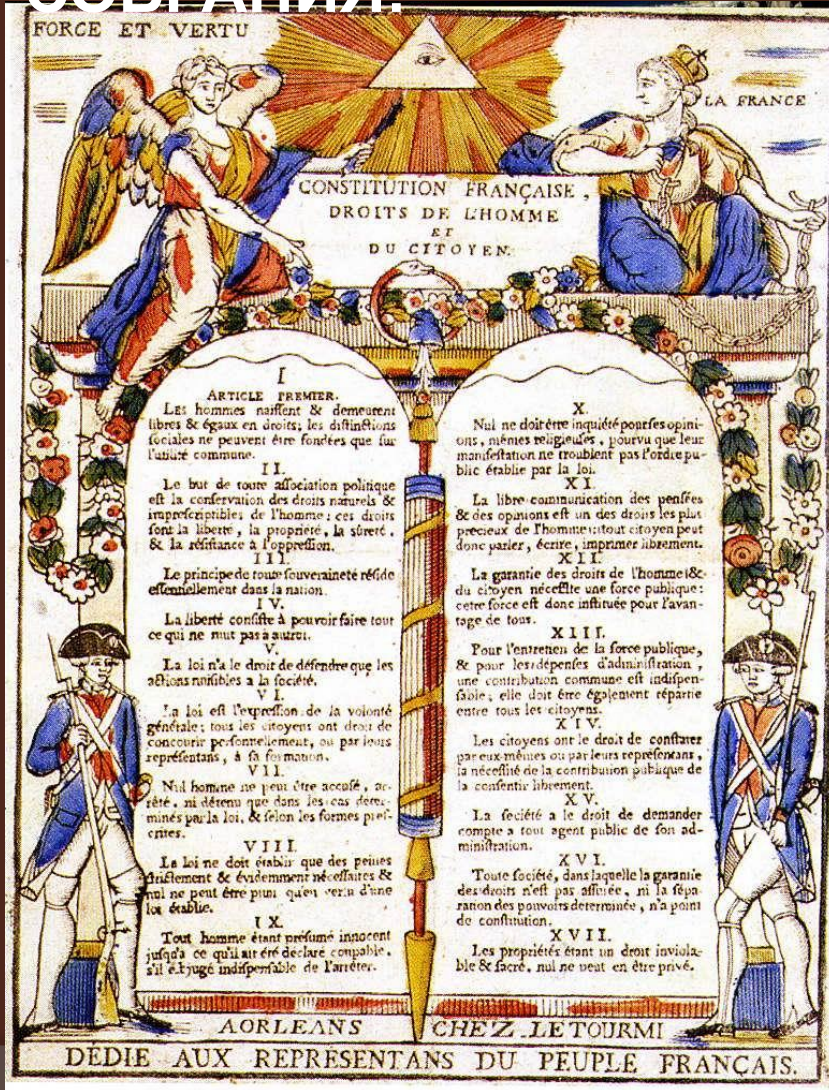 СОБРАНИЯ:
FORCE ET VERTU
LA FRANCE
CONSTITUTION FRANÇAISE,
DROITS DE L'HOMME
ET
DU CITOYEN.
I
ARTICLE PREMIER.
Les hommes naissent & demeurent
libres & égaux en droits; les distinctions
sociales ne peuvent être fondées que sur
l'utilité commune.
II.
Le but de toute association politique
est la conservation des droits naturels &
imprescriptibles de l'homme; ces droits
sont la liberté, la propriété, la sûreté,
& la résistance à l'oppression.
III.
Le principe de toute souveraineté réside
essentiellement dans la nation.
IV.
La liberté consiste à pouvoir faire tout
ce qui ne nuit pas à autrui.
V.
La loi n'a le droit de défendre que les
actions nuisibles a la société.
VI.
La loi est l'expression de la volonté
générale; tous les citoyens ont droit de
concourir personnellement, ou par leurs
représentans, à sa formation.
VII.
Nul homme ne peut être accusé, ar-
rêté, ni détenu que dans les cas déter-
minés par la loi, & selon les formes pres-
crites.
VIII.
La loi ne doit établir que des peines
strictement & évidemment nécessaires &
nul ne peut être puni qu'en vertu d'une
loi établie.
IX.
Tout homme étant présumé innocent
jusqu'a ce qu'il ait été déclaré coupable,
s'il est jugé indispensable de l'arrêter.
X.
Nul ne doit être inquiété pour ses opini-
ons, mêmes religieuses, pourvu que leur
manifestation ne troublent pas l'ordre pu-
blic établie par la loi.
XI.
La libre communication des pensées
& des opinions est un des droits les plus
précieux de l'homme: tout citoyen peut
donc parler, écrire, imprimer librement.
XII.
La garantie des droits de l'homme &
du citoyen nécessite une force publique:
cette force est donc instituée pour l'avan-
tage de tous.
XIII.
Pour l'entretien de la force publique,
& pour les dépenses d'administration,
une contribution commune est indispen-
sable; elle doit être également répartie
entre tous les citoyens.
XIV.
Les citoyens ont le droit de constater
par eux-mêmes ou par leurs représentans,
la nécessité de la contribution publique de
la consentir librement.
XV.
La société a le droit de demander
compte a tout agent public de son ad-
ministration.
XVI.
Toute société, dans laquelle la garantie
des droits n'est pas assurée, ni la sépa-
ration des pouvoirs determinée, n'a point
de constitution.
XVII.
Les propriétés étant un droit inviola-
ble & sacré, nul ne peut en être privé.
A ORLEANS CHEZ LETOURMI
DÉDIE AUX REPRESENTANS DU PEUPLE FRANÇAIS.